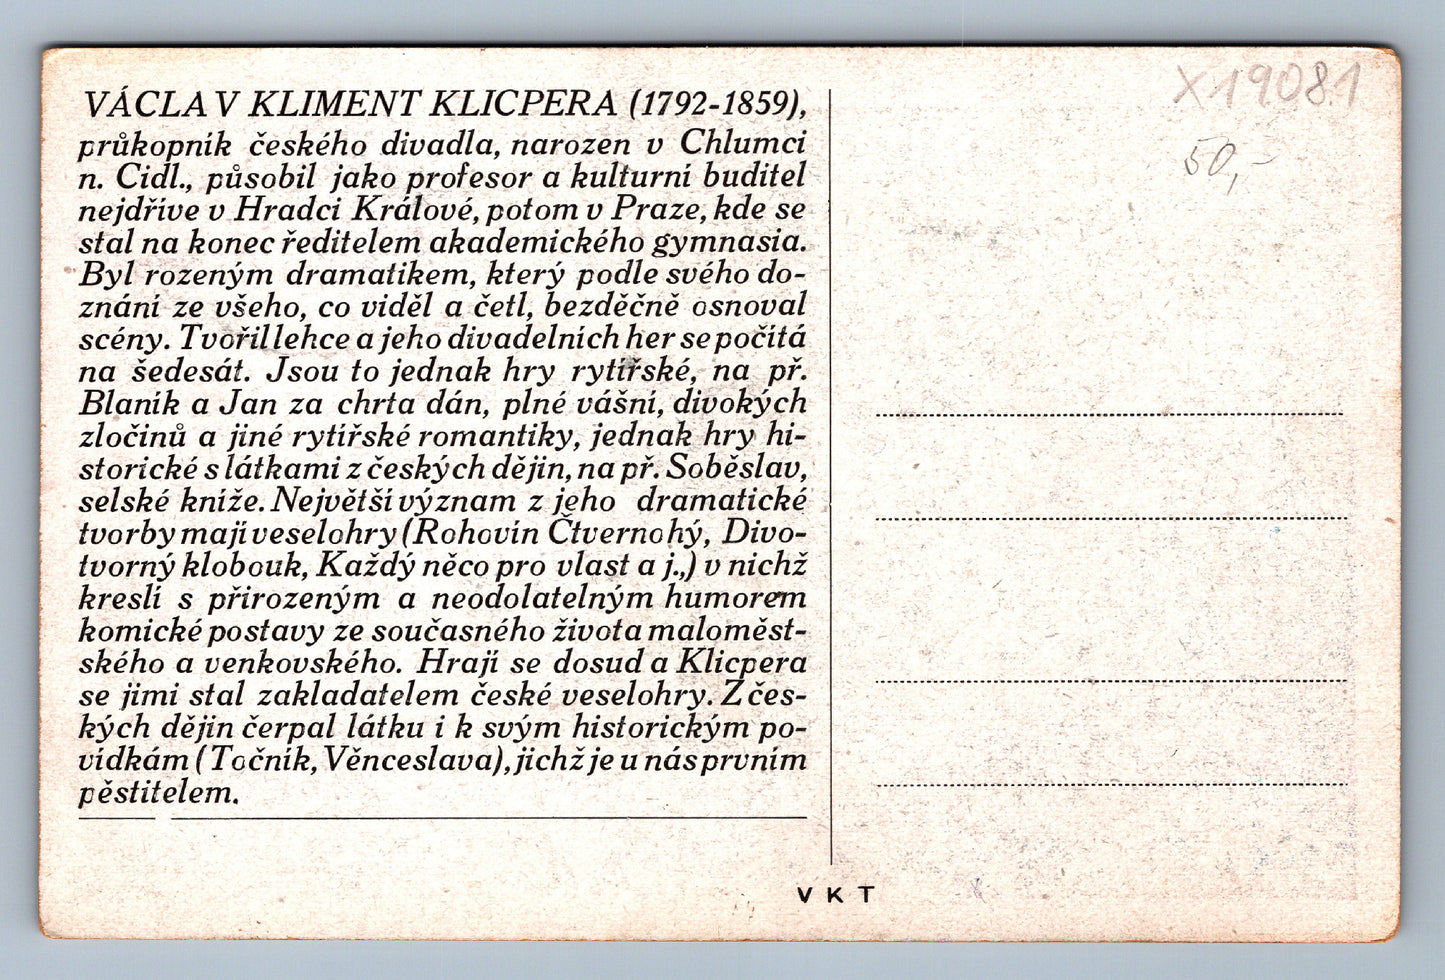 VÁCLAV KLIMENT KLICPERA (1792-1859),
průkopník českého divadla, narozen v Chlumci
n. Cidl., působil jako profesor a kulturní buditel
nejdříve v Hradci Králové, potom v Praze, kde se
stal na konec ředitelem akademického gymnasia.
Byl rozeným dramatikem, který podle svého do-
znání ze všeho, co viděl a četl, bezděčně osnoval
scény. Tvořil lehce a jeho divadelních her se počítá
na šedesát. Jsou to jednak hry rytířské, na př.
Blaník a Jan za chrta dán, plné vášní, divokých
zločinů a jiné rytířské romantiky, jednak hry hi-
storické s látkami z českých dějin, na př. Soběslav,
selské kníže. Největší význam z jeho dramatické
tvorby mají veselohry (Rohovín Čtvernohý, Divo-
tvorný klobouk, Každý něco pro vlast a j.,) v nichž
kreslí s přirozeným a neodolatelným humorem
komické postavy ze současného života maloměst-
ského a venkovského. Hrají se dosud a Klicpera
se jimi stal zakladatelem české veselohry. Z čes-
kých dějin čerpal látku i k svým historickým po-
vídkám (Točník, Věnceslava), jichž je u nás prvním
pěstitelem.
X19081
50,-
VKT